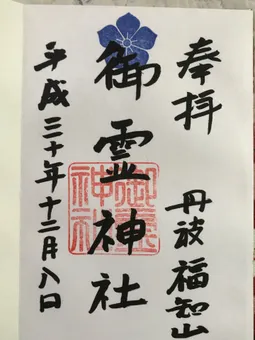 奉拝
丹波 福知山
御霊神社
御霊神社
平成三十年十二月八日